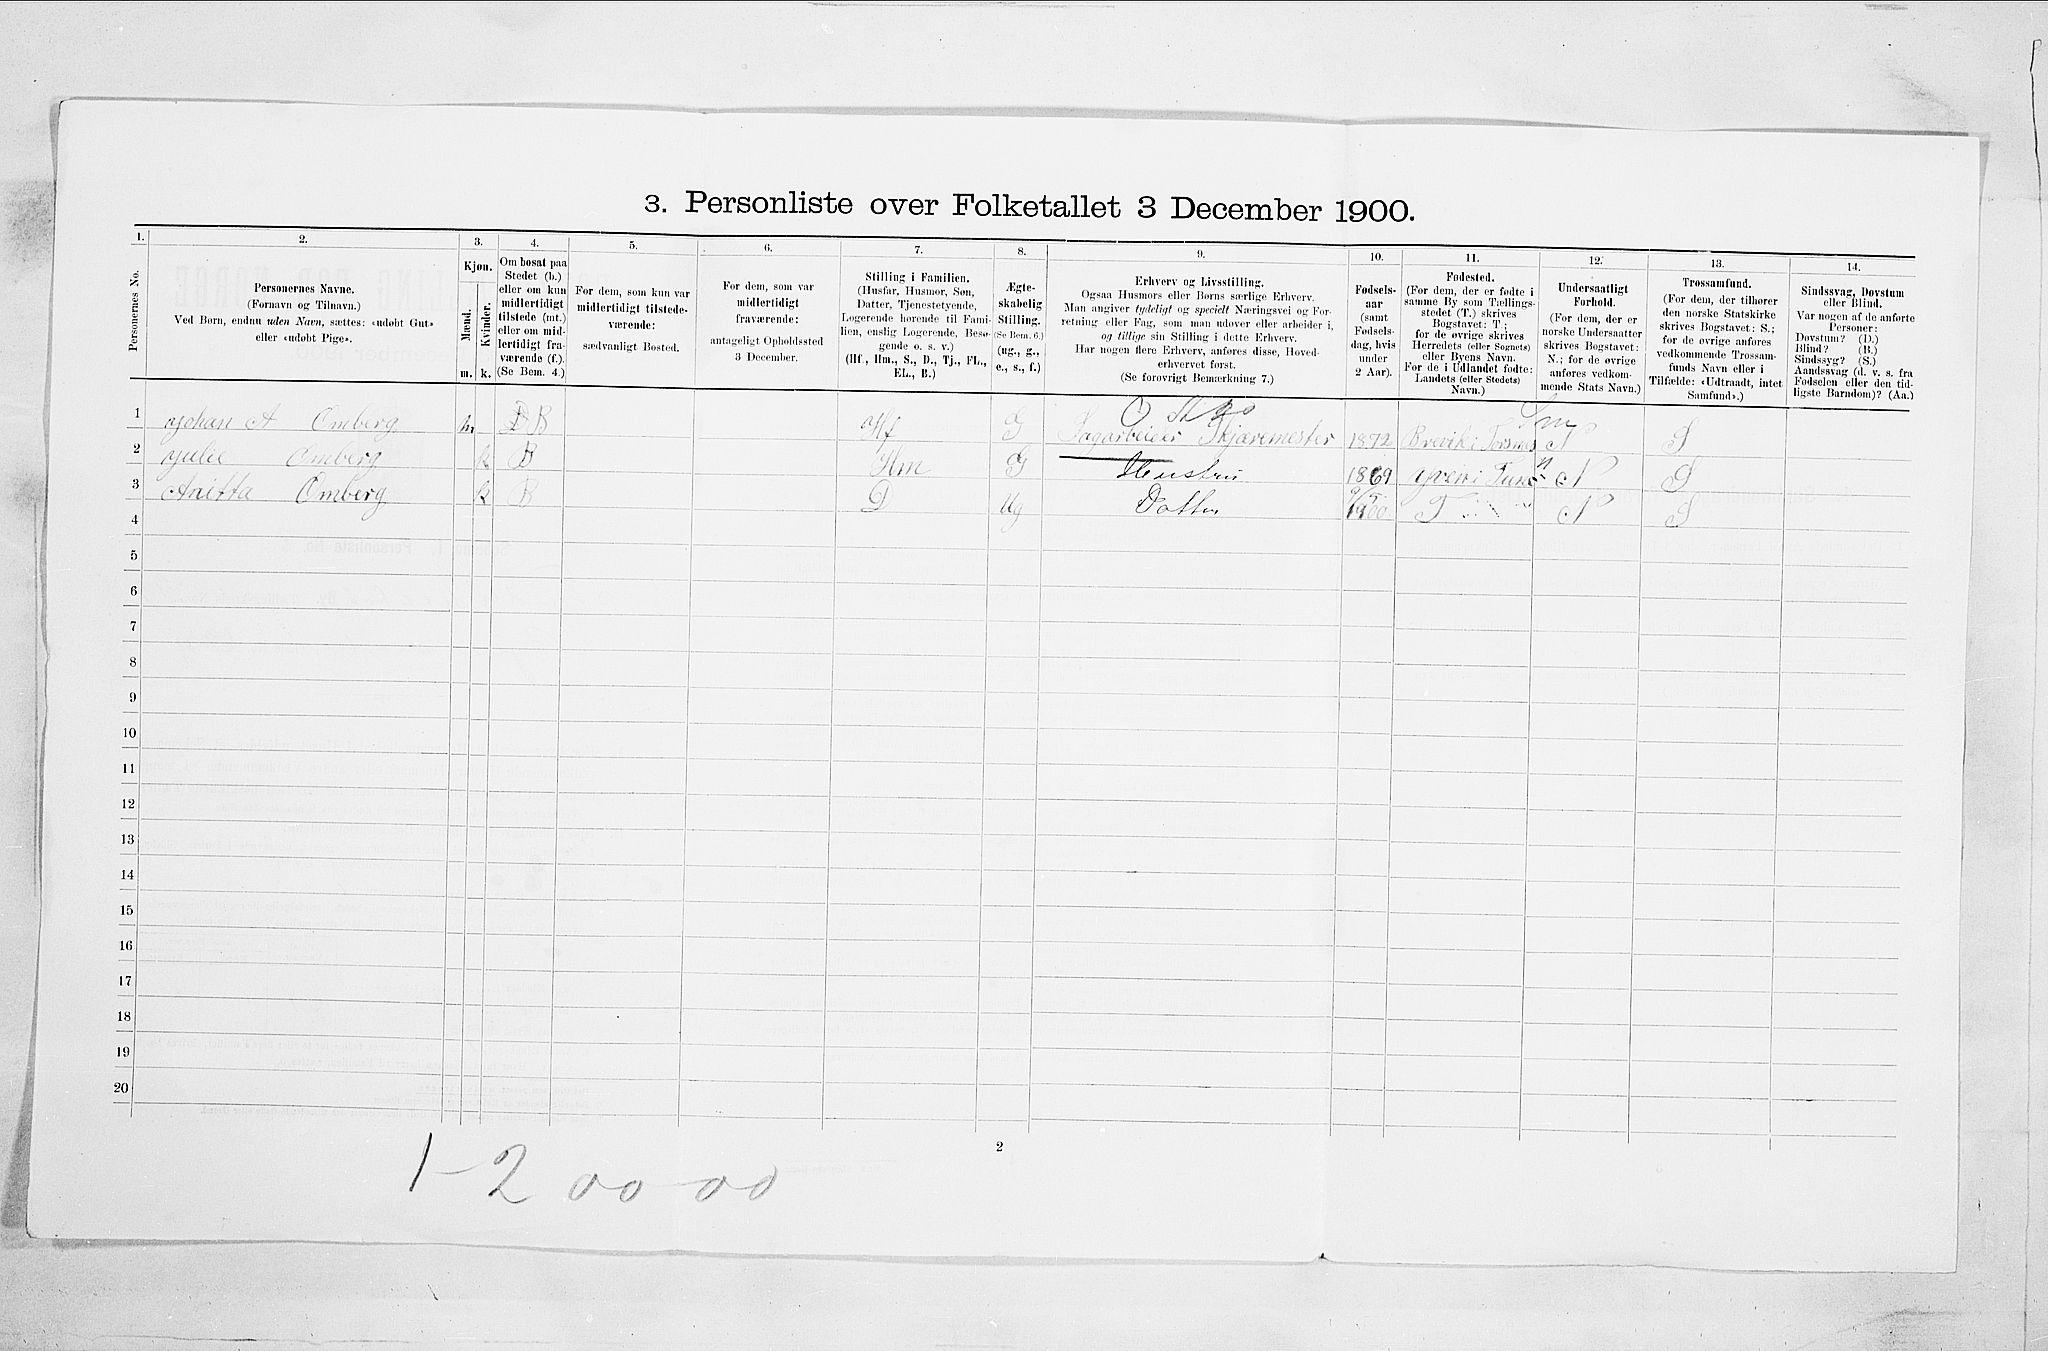 3. Personliste over Folketallet 3 December 1900.
1. 2. 3. 4. 5. 6. 7. 8. 9. 10. 11. 12. 13. 14.
Personernes No.
Personernes Navne.
(Fornavn og Tilnavn.)
Ved Børn, endnu uden Navn, sættes: «udøbt Gut»
eller «udøbt Pige».
Kjøn.
Mænd.
Kvinder.
m. k.
Om bosat paa
Stedet (b.)
eller om kun
midlertidigt
tilstede (mt.)
eller om mid-
lertidigt fra-
værende (f.).
(Se Bem. 4.)
For dem, som kun var
midlertidigt tilstede-
værende:
sædvanligt Bosted.
For dem, som var
midlertidigt
fraværende:
antageligt Opholdssted
3 December.
Stilling i Familien.
(Husfar, Husmor, Søn,
Datter, Tjenestetyende,
Logerende hørende til Fami-
lien, enslig Logerende, Besø-
gende o. s. v.)
(Hf., Hm., S., D., Tj., FL.,
EL., B.)
Ægte-
skabelig
Stilling.
(Se Bem. 6.)
(ug., g.,
e., s., f.)
Erhverv og Livsstilling.
Ogsaa Husmors eller Børns særlige Erhverv.
Man angiver tydeligt og specielt Næringsvei og For-
retning eller Fag, som man udøver eller arbeider i,
og tillige sin Stilling i dette Erhverv.
Har nogen flere Erhverv, anføres disse, Hoved-
erhvervet først.
(Se forøvrigt Bemærkning 7.)
Fødsels-
aar
(samt
Fødsels-
dag, hvis
under
2 Aar).
Fødested.
(For dem, der er fødte i
samme By som Tællings-
stedet (T.) skrives
Bogstavet: T.;
for de øvrige skrives
Herredets (eller Sognets)
eller Byens Navn.
For de i Udlandet fødte:
Landets (eller Stedets)
Navn.)
Undersaatligt
Forhold.
(For dem, der er
norske Undersaatter
skrives Bogstavet:
N.; for de øvrige
anføres vedkom-
mende Stats Navn.)
Trossamfund.
(For dem, der tilhører
den norske Statskirke
skrives Bogstavet: S.;
for de øvrige anføres
vedkommende Trossam-
funds Navn eller i
Tilfælde: «Udtraadt, intet
Samfund».)
Sindssvag, Døvstum
eller Blind.
Var nogen af de anførte
Personer:
Døvstum? (D.)
Blind? (B.)
Sindssyg? (S.)
Aandssvag (d. v. s. fra
Fødselen eller den tid-
ligste Barndom)? (Aa.)
1 Johan A Omberg m B Hf G Sagarbeider Skjæremester 1872 Brevik i N S
2 Julie Omberg k B Hm G Hustru 1869 i Tune N S
3 Anitta Omberg k B D Ug Datter T N S
4
5
6
7
8
9
10
11
12
13
14
15
16
17
18
19
20
2
1-2 00 00